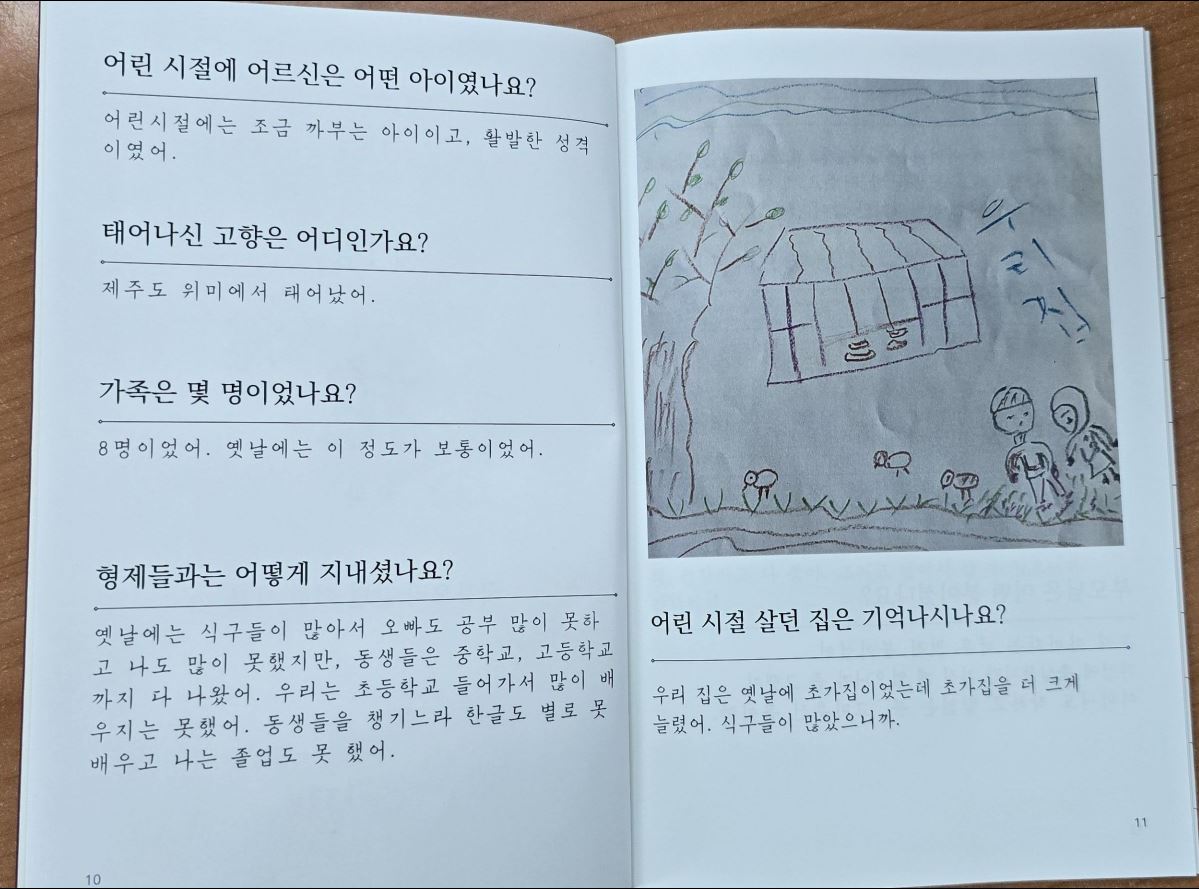 어린 시절에 어르신은 어떤 아이였나요?
어린시절에는 조금 까부는 아이이고, 활발한 성격
이였어.
태어나신 고향은 어디인가요?
제주도 위미에서 태어났어.
가족은 몇 명이었나요?
8명이었어. 옛날에는 이 정도가 보통이었어.
형제들과는 어떻게 지내셨나요?
옛날에는 식구들이 많아서 오빠도 공부 많이 못하
고 나도 많이 못했지만, 동생들은 중학교, 고등학교
까지 다 나왔어. 우리는 초등학교 들어가서 많이 배
우지는 못했어. 동생들을 챙기느라 한글도 별로 못
배우고 나는 졸업도 못 했어.
10
우
리
집
어린 시절 살던 집은 기억나시나요?
우리 집은 옛날에 초가집이었는데 초가집을 더 크게
늘렸어. 식구들이 많았으니까.
11